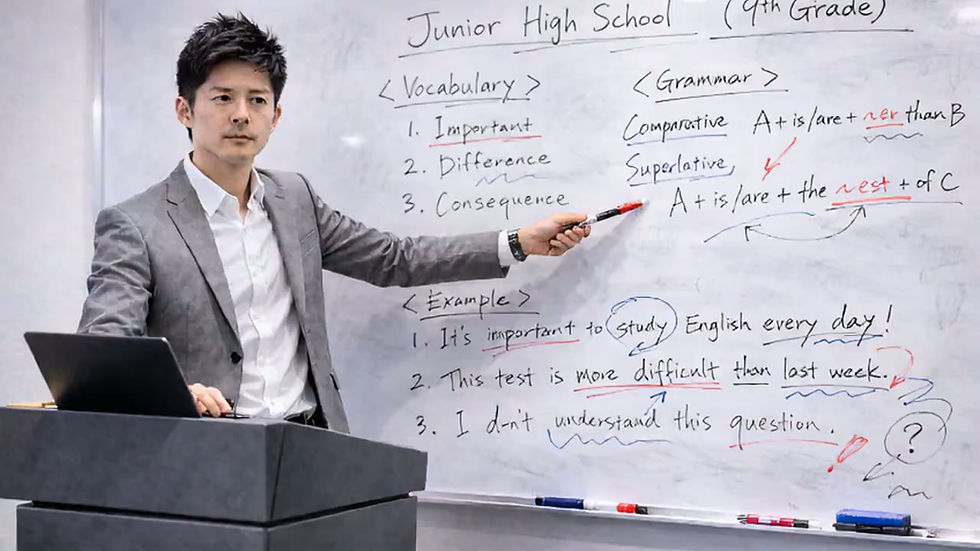 Junior High School (9th Grade)
<Vocabulary>
1. Important
2. Difference
3. Consequence
<Grammar>
Comparative A + is/are + ~er than B
Superlative,
A + is/are + the ~est + of C
<Example>
1. It's important to study English every day!
2. This test is more difficult than last week.
3. I d-n't understand this question.
!
?